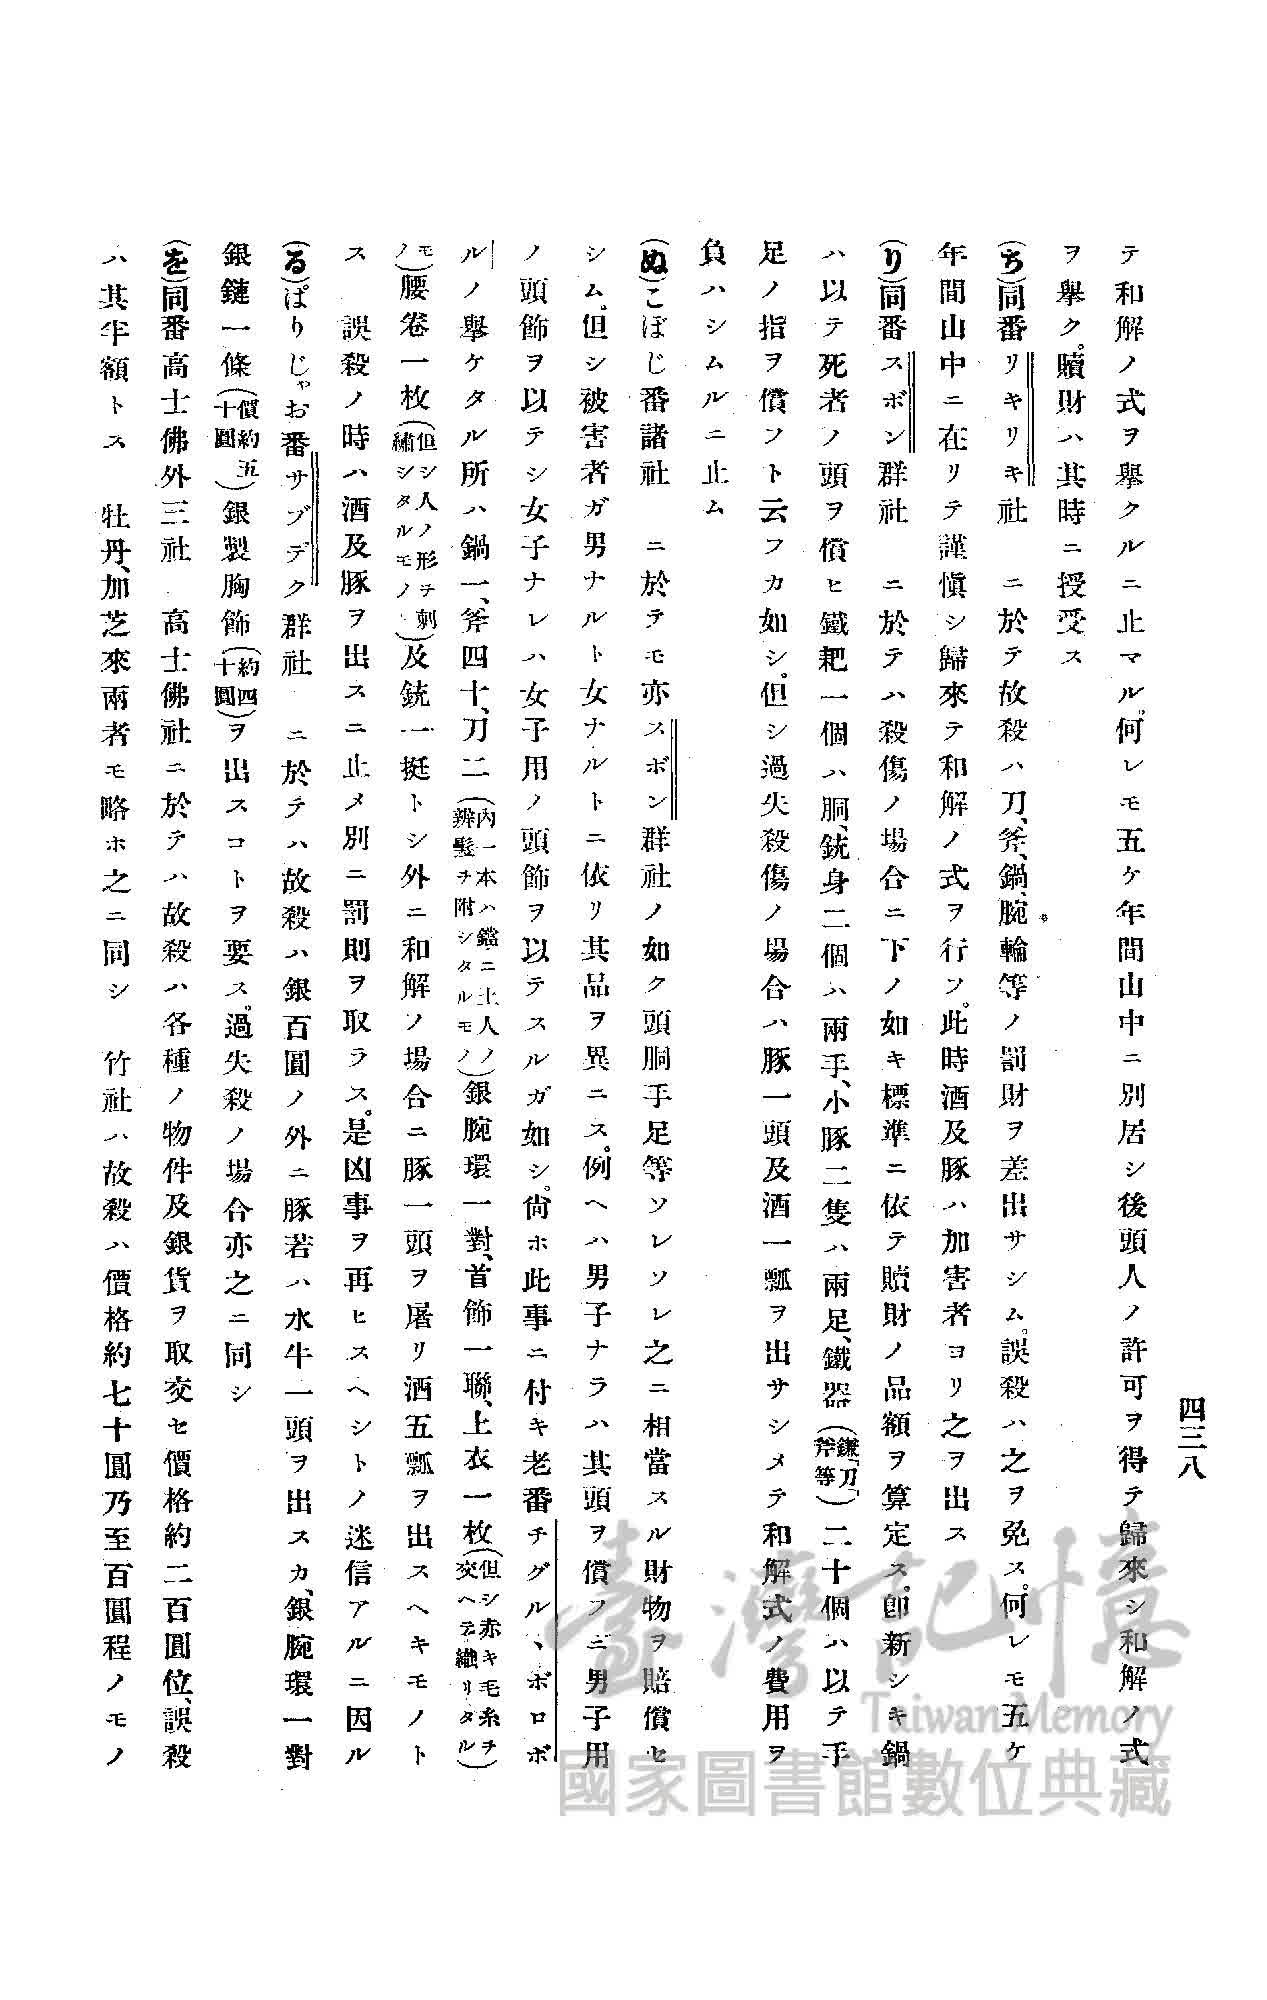 四三八
テ和解ノ式ヲ擧クルニ止マル。何レモ五ケ年間山中ニ別居シ後頭人ノ許可ヲ得テ歸來シ和解ノ式
ヲ擧ク。贖財ハ其時ニ授受ス
(ち)同番リキリキ社　ニ於テ故殺ハ刀、斧、鍋、腕輪等ノ罰財ヲ差出サシム。誤殺ハ之ヲ免ス。何レモ五ケ
年間山中ニ在リテ謹愼シ歸來テ和解ノ式ヲ行フ。此時酒及豚ハ加害者ヨリ之ヲ出ス
(り)同番スボン群社　ニ於テハ殺傷ノ場合ニ下ノ如キ標準ニ依テ贖財ノ品額ヲ算定ス。卽新シキ鍋
ハ以テ死者ノ頭ヲ償ヒ鐵耙一個ハ胴、銃身二個ハ兩手、小豚二隻ハ兩足、鐵器(鎌、刀、斧等)二十個ハ以テ手
足ノ指ヲ償フト云フカ如シ。但シ過失殺傷ノ場合ハ豚一頭及酒一瓢ヲ出サシメテ和解式ノ費用ヲ
負ハシムルニ止ム
(ぬ)こぼじ番諸社　ニ於テモ亦スボン群社ノ如ク頭胴手足等ソレソレ之ニ相當スル財物ヲ賠償セ
シム。但シ被害者ガ男ナルト女ナルトニ依リ其品ヲ異ニス。例ヘハ男子ナラハ其頭ヲ償フニ男子用
ノ頭飾ヲ以テシ女子ナレハ女子用ノ頭飾ヲ以テスルガ如シ。尙ホ此事ニ付キ老番チグル、ボロボ
ルノ擧ケタル所ハ鍋一、斧四十、刀二(內一本ハ鐺ニ土人ノ辨髮ヲ附シタルモノ)銀腕環一對、首飾一聯、上衣一枚(但シ赤キ毛糸ヲ交ヘテ織リタル
モノ)腰卷一枚(但シ人ノ形ヲ刺繡シタルモノ)及銃一挺トシ外ニ和解ノ場合ニ豚一頭ヲ屠リ酒五瓢ヲ出スヘキモノト
ス　誤殺ノ時ハ酒及豚ヲ出スニ止メ別ニ罰則ヲ取ラス。是凶事ヲ再ヒスヘシトノ迷信アルニ因ル
(る)ぱりじゃお番サブデク群社　ニ於テハ故殺ハ銀百圓ノ外ニ豚若ハ水牛一頭ヲ出スカ、銀腕環一對
銀鏈一條(價約五十圓)銀製胸飾(約四十圓)ヲ出スコトヲ要ス。過失殺ノ場合亦之ニ同シ
(を)同番高士佛外三社　高士佛社ニ於テハ故殺ハ各種ノ物件及銀貨ヲ取交セ價格約二百圓位、誤殺
ハ其半額トス　牡丹、加芝來兩者モ略ホ之ニ同シ　竹社ハ故殺ハ價格約七十圓乃至百圓程ノモノ
臺灣記憶
Taiwan Memory
國家圖書館數位典藏